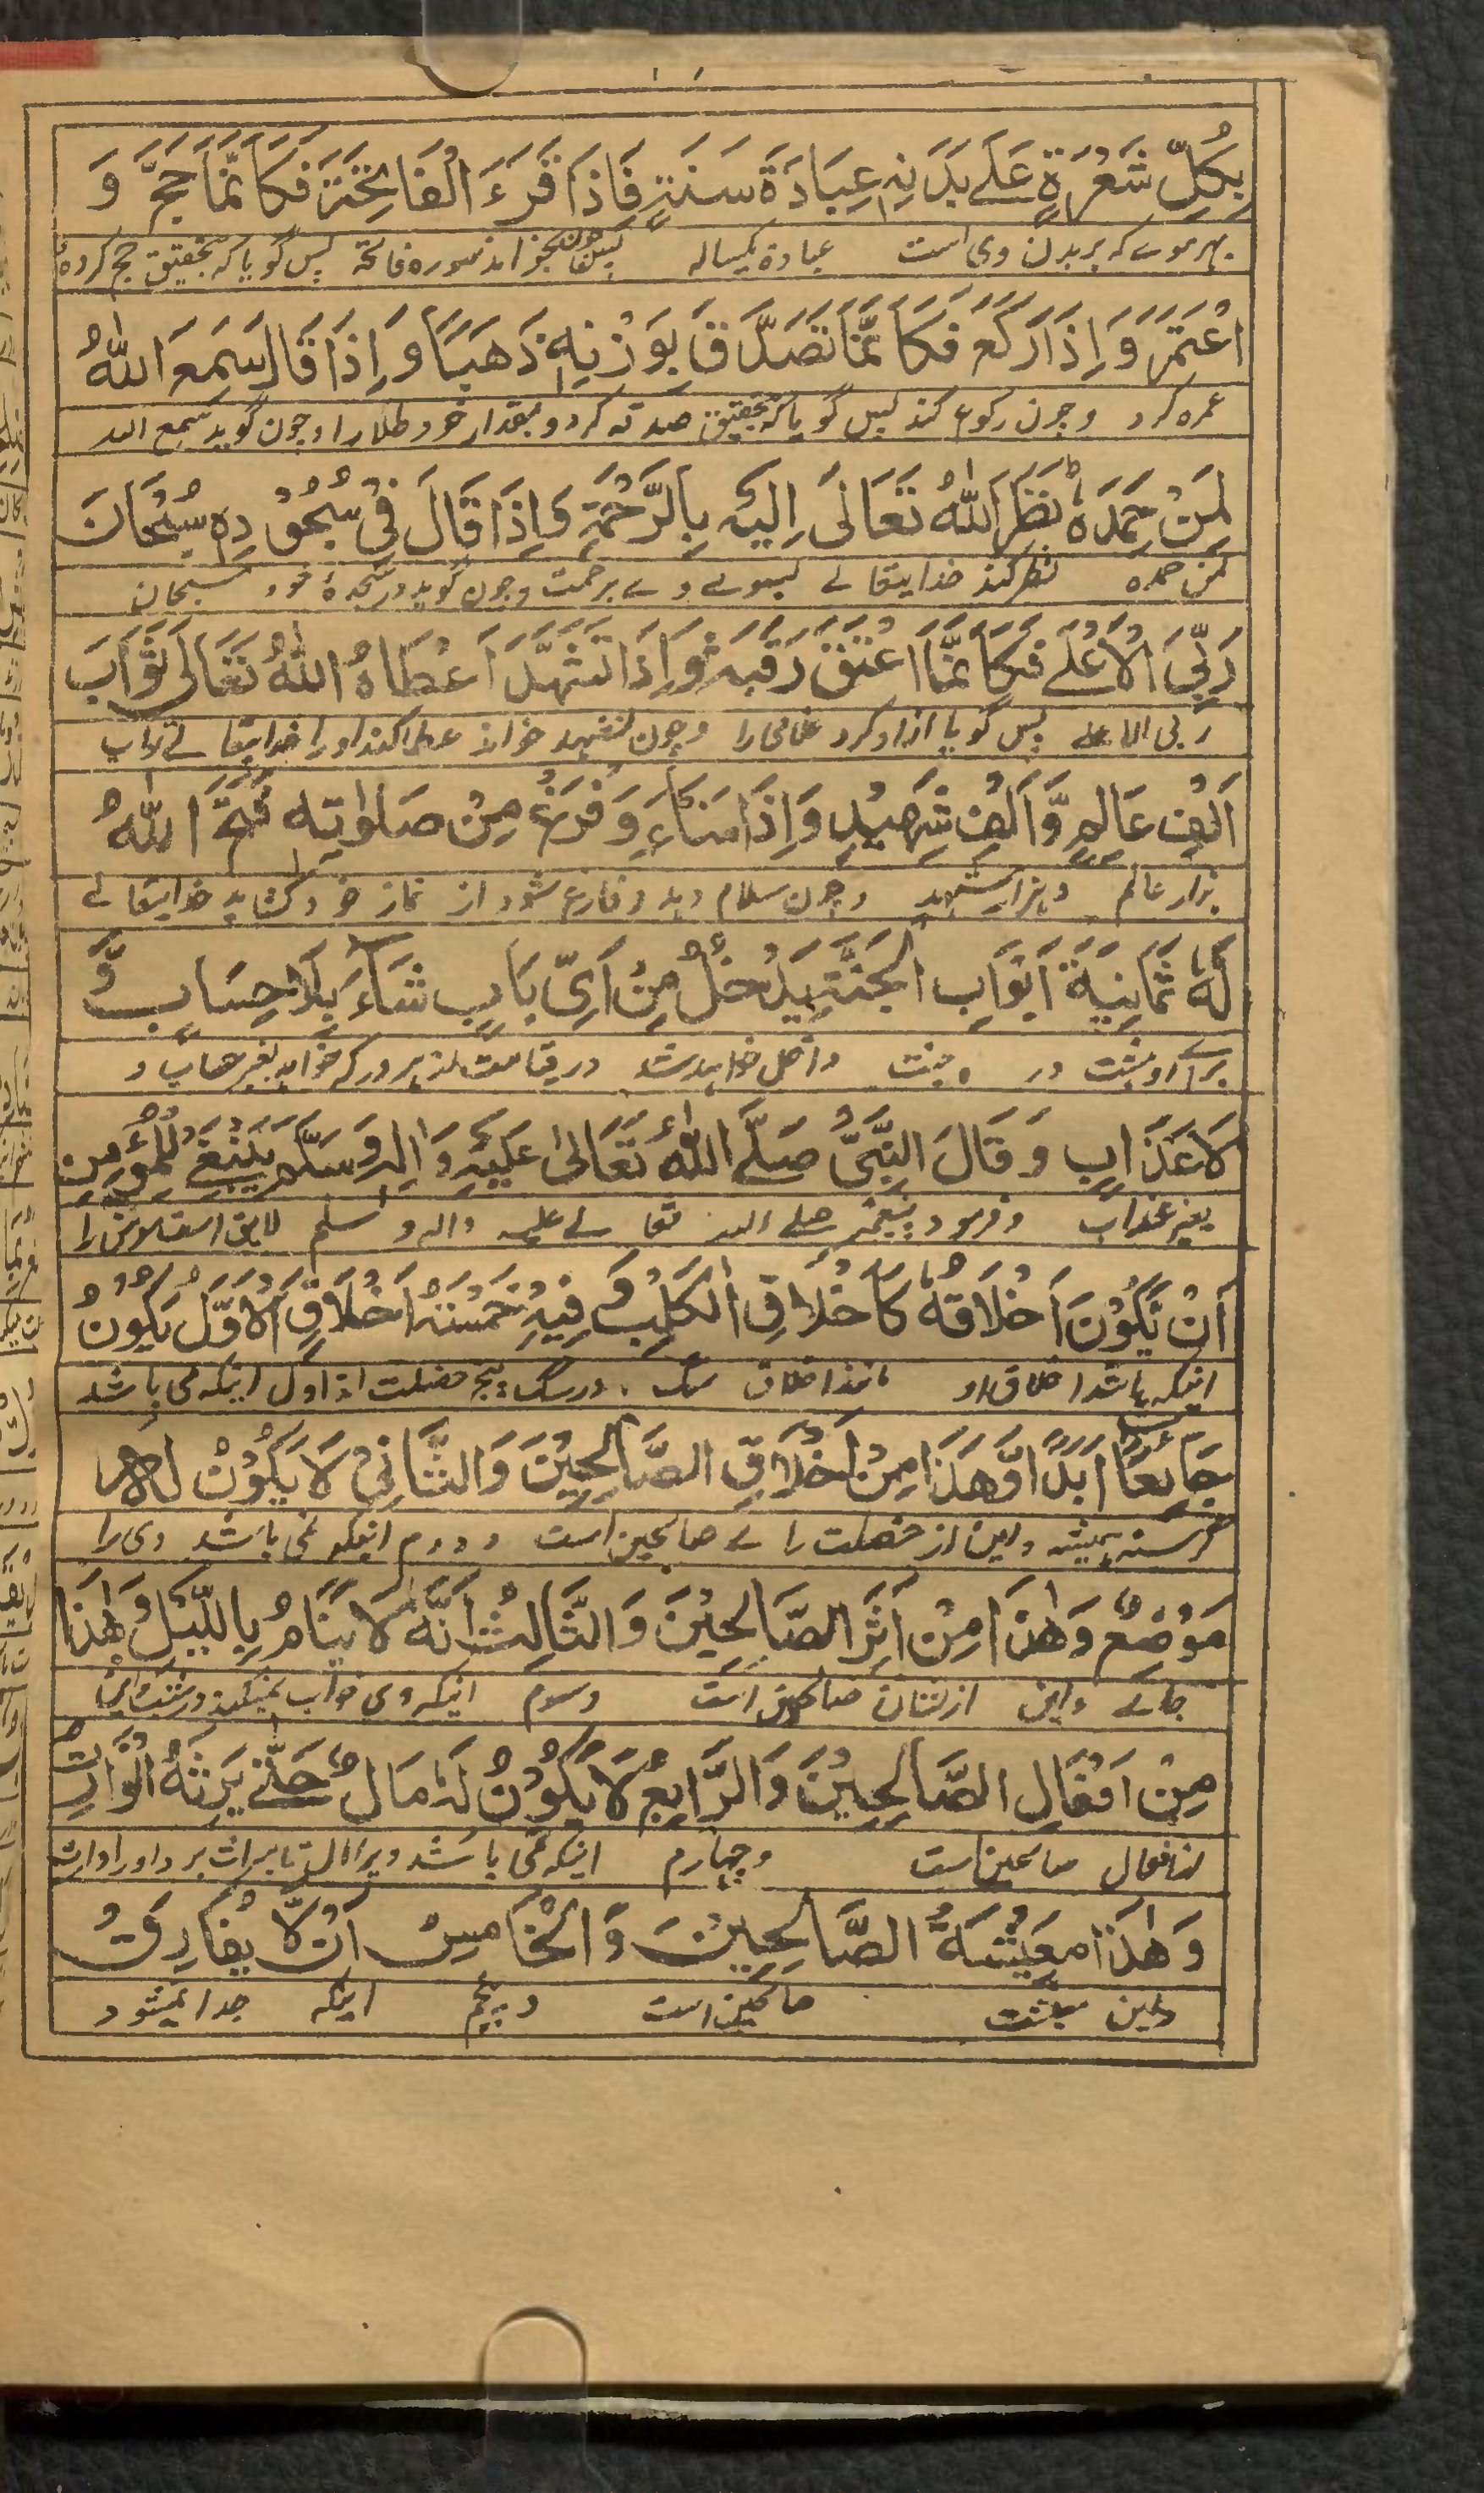 بِكُلِّ شَعْرَةٍ عَلَے بَدَنِهٖ عِبَادَةَ سَنَةٍ فَاِذَا قَرَءَ الْفَاتِحَةَ فَكَاَنَّمَا حَجَّ وَ
بہر موے کہ بر بدن وی است عبادة یکساله پس چون بخواند سوره فاتحة پس گویا کہ بتحقیق حج کردہ
اعْتَمَرَ وَاِذَا رَكَعَ فَكَاَنَّمَا تَصَدَّقَ بِوَزْنِهٖ ذَهَبًا وَاِذَا قَالَ سَمِعَ اللّٰهُ
عمرہ کرد و چون رکوع کند پس گویا کہ بتحقیق صدقہ کرد و بمقدار خود طلا را و چون گوید سمع اللہ
لِمَنْ حَمِدَهٗ نَظَرَ اللّٰهُ تَعَالٰى اِلَيْهِ بِالرَّحْمَةِ وَاِذَا قَالَ فِيْ سُجُوْدِهٖ سُبْحَانَ
لمن حمده نظر کند خدایتعالے بسوے وے برحمت و چون گوید در سجدۂ خود سبحان
رَبِّيَ الْاَعْلٰے فَكَاَنَّمَا اعْتَقَ رَقَبَةً وَاِذَا تَشَهَّدَ اَعْطَاهُ اللّٰهُ تَعَالٰى ثَوَابَ
ربی الاعلے پس گویا ازاد کرد غلامی را و چون تشهد خواند عطا کند او را خدایتعالے ثواب
اَلْفِ عَالِمٍ وَّاَلْفِ شَهِيْدٍ وَاِذَا مَنَاءَ وَفَرَغَ مِنْ صَلٰوتِهٖ فَتَحَ اللّٰهُ
ہزار عالم و ہزار شہید و چون سلام دہد و فارغ شود از نماز خود کشاید خدایتعالے
لَهٗ ثَمَانِيَةَ اَبْوَابِ الْجَنَّةِ يَدْخُلُ مِنْ اَيِّ بَابٍ شَاءَ بِلَا حِسَابٍ وَّ
براے او ہشت در جنت داخل خواہد شد در قیامت از ہر در کہ خواہد بغیر حساب و
لَا عَذَابٍ وَقَالَ النَّبِيُّ صَلَّے اللّٰهُ تَعَالٰى عَلَيْهِ وَاٰلِهٖ وَسَلَّمَ يَنْبَغِيْ لِلْمُؤْمِنِ
بغیر عذاب و فرمود پیغمبر صلے اللہ تعالے علیہ و اله و سلم لایق است مومن را
اَنْ يَّكُوْنَ اَخْلَاقُهٗ كَاَخْلَاقِ الْكَلْبِ فِيْهِ خَمْسَةُ اَخْلَاقٍ اَلْاَوَّلُ يَكُوْنُ
اینکہ باشد اخلاق او مانند اخلاق سگ در سگ پنج خصلت اند اول اینکہ می باشد
جَائِعًا اَبَدًا وَّهٰذَا مِنْ اَخْلَاقِ الصَّالِحِيْنَ وَالثَّانِيْ لَا يَكُوْنُ لَهٗ
گرسنہ ہمیشہ و این از خصلت صالحین است و دوم اینکہ نمی باشد وی را
مَوْضِعٌ وَهٰذَا مِنْ اَثَرِ الصَّالِحِيْنَ وَالثَّالِثُ اَنَّهٗ لَا يَنَامُ بِاللَّيْلِ وَهٰذَا
جائے و این از نشان صالحین است و سوم اینکہ وی خواب نمیکند در شب و این
مِنْ اَفْعَالِ الصَّالِحِيْنَ وَالرَّابِعُ لَا يَكُوْنُ لَهٗ مَالٌ حَتّٰے يَرِثَهُ الْوَارِثُ
از افعال صالحین است و چہارم اینکہ نمی باشد ویرا مال تا میراث برد او را وارث
وَهٰذَا مَعِيْشَةُ الصَّالِحِيْنَ وَالْخَامِسُ اَنْ لَّا يُفَارِقَ
و این معیشت صالحین است و پنجم اینکہ جدا نمیشود